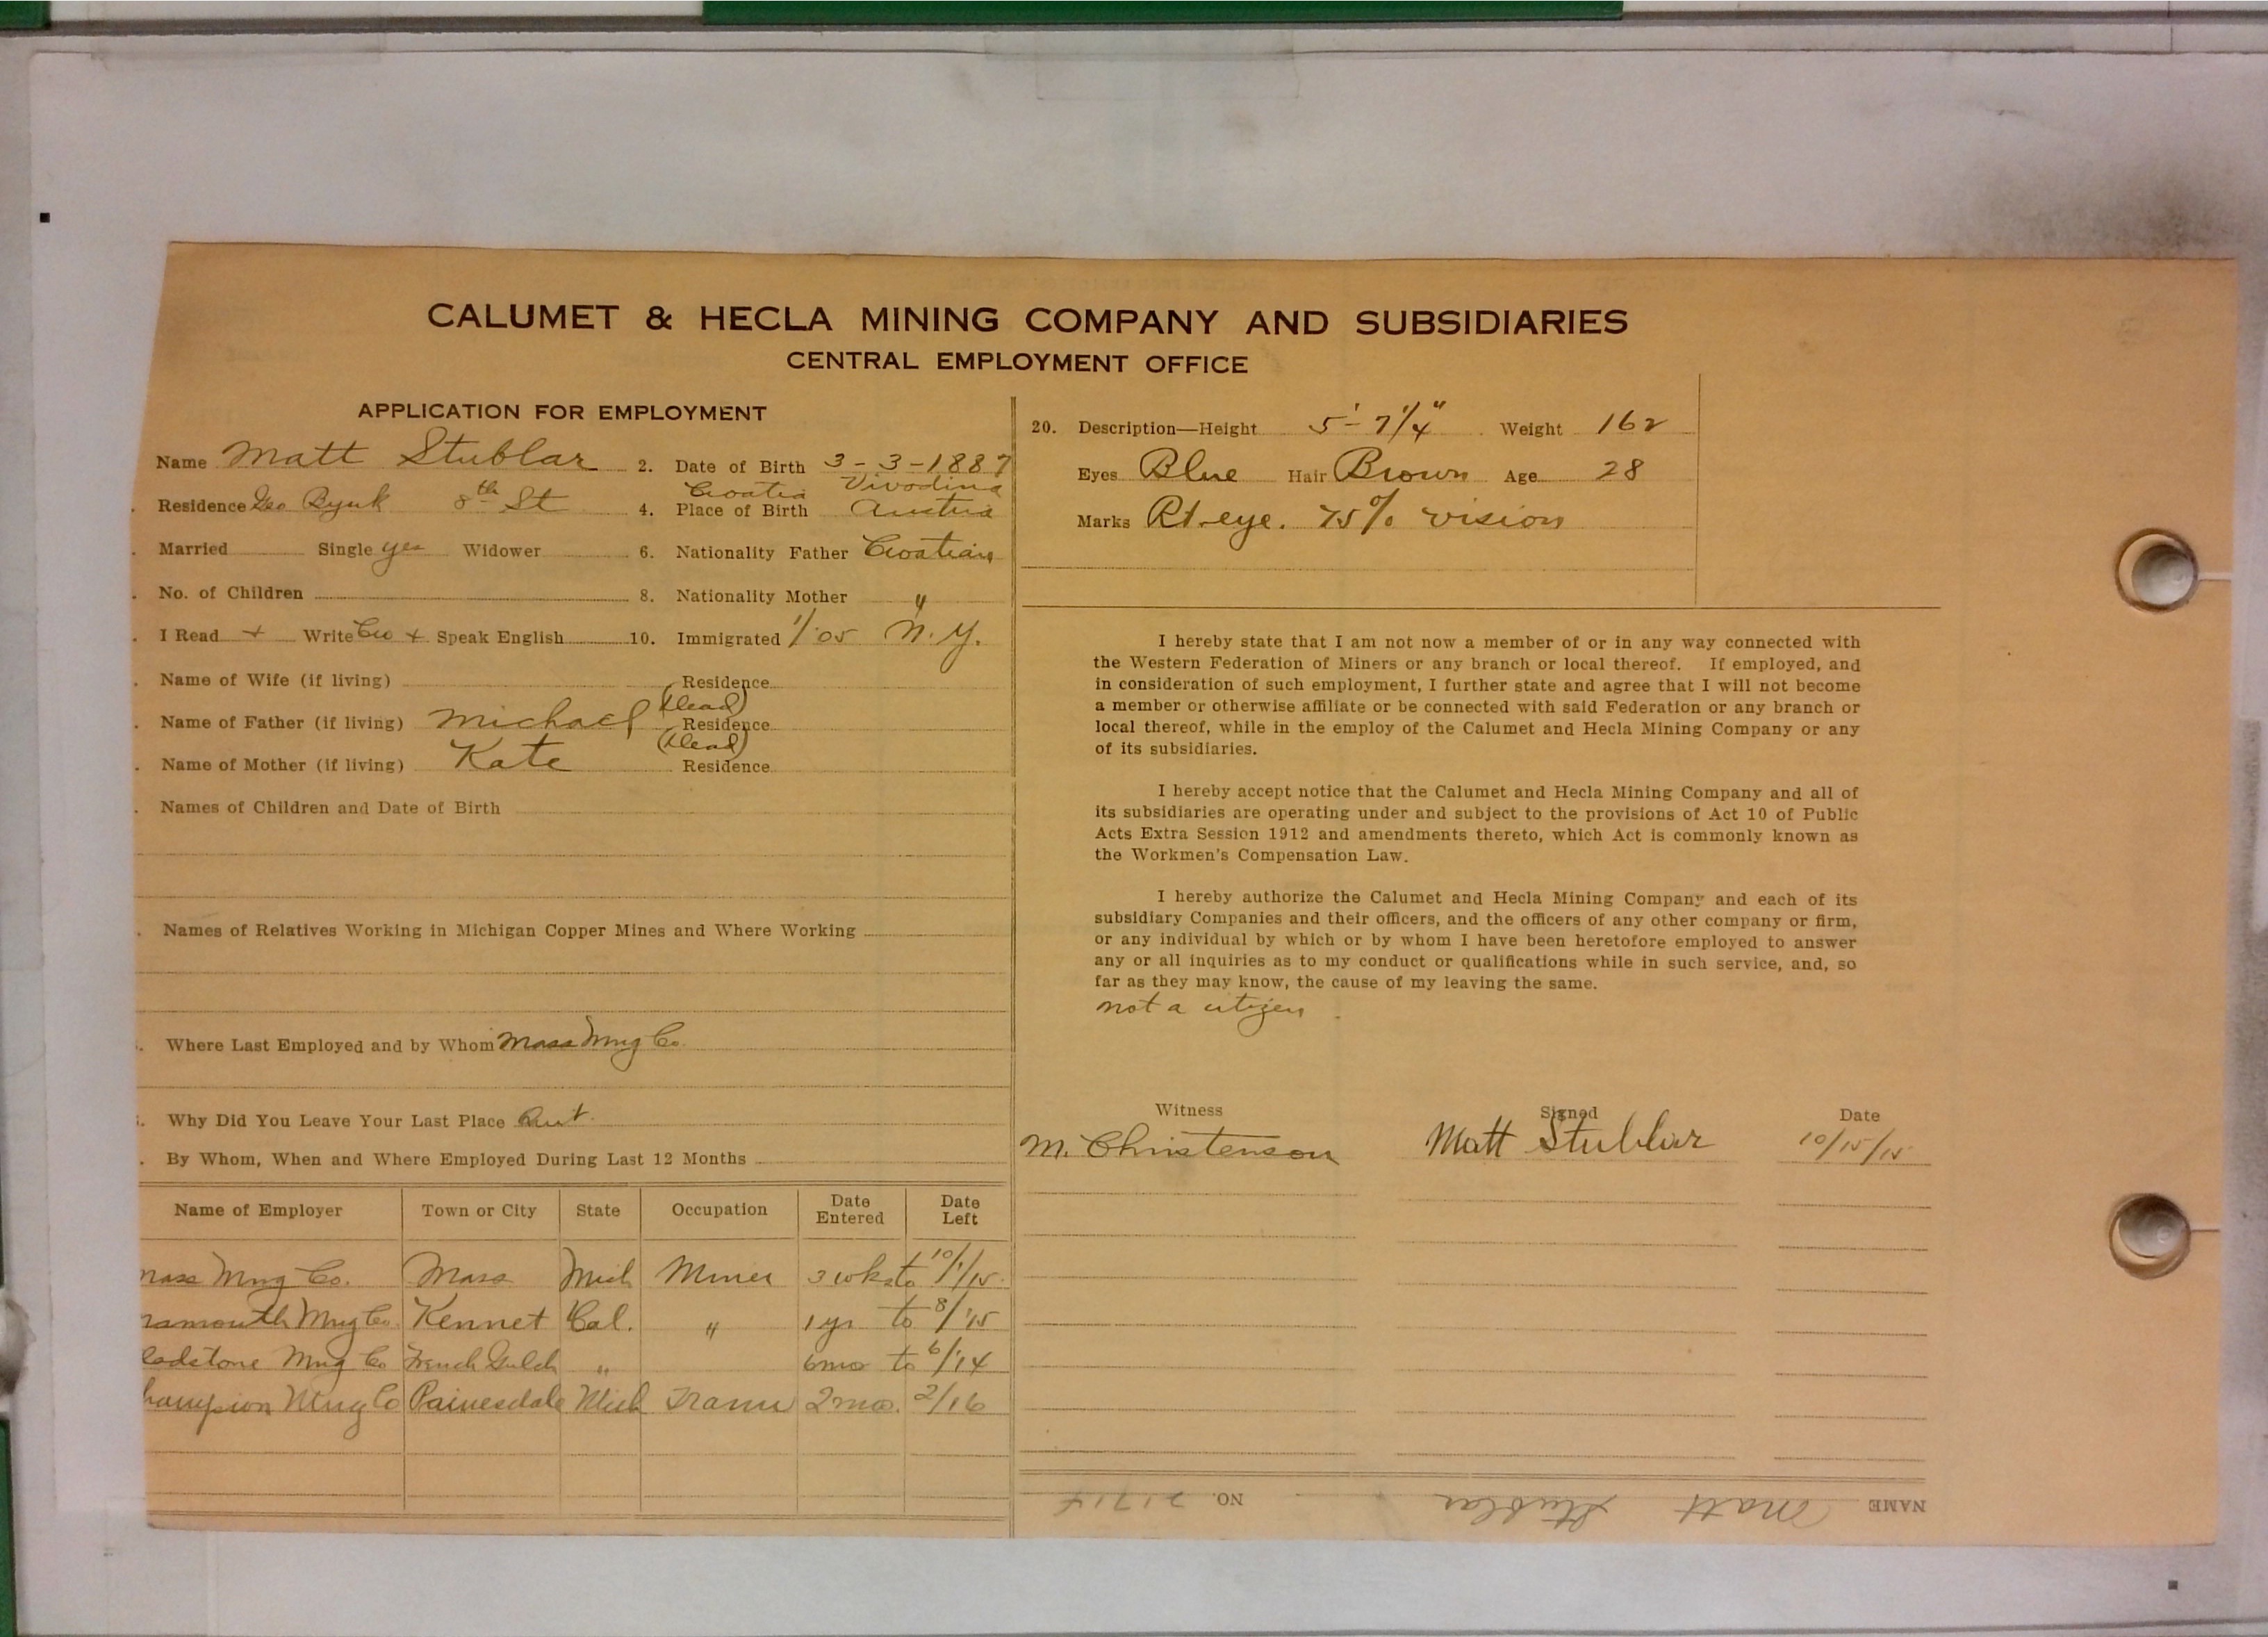 CALUMET & HECLA MINING COMPANY AND SUBSIDIARIES
CENTRAL EMPLOYMENT OFFICE
APPLICATION FOR EMPLOYMENT
Name Matt Stublar 2. Date of Birth 3-3-1887
Croatia Vivodina
Residence Geo 8th St 4. Place of Birth Austria
Married Single yes Widower 6. Nationality Father Croatian
No. of Children 8. Nationality Mother "
I Read + Write Cro + Speak English 10. Immigrated 1/'05 N.Y.
Name of Wife (if living) Residence
Name of Father (if living) Michael (dead) Residence
Name of Mother (if living) Kate (dead) Residence
Names of Children and Date of Birth
Names of Relatives Working in Michigan Copper Mines and Where Working
Where Last Employed and by Whom Mass Mng Co.
Why Did You Leave Your Last Place
By Whom, When and Where Employed During Last 12 Months
Name of Employer Town or City State Occupation Date Entered Date Left
Mass Mng Co. Mass Mich Miner 3 wks to 10/1/15
mouth Mng Co. Kennet Cal. " 1 yr to 8/'15
ladstone Mng Co French Gulch " 6mo to 6/'14
hampion Mng Co Painesdale Mich Tramr 2mo. 2/16
20. Description—Height 5'-7 1/4" Weight 162
Eyes Blue Hair Brown Age 28
Marks Rt-eye. 75% vision
I hereby state that I am not now a member of or in any way connected with
the Western Federation of Miners or any branch or local thereof. If employed, and
in consideration of such employment, I further state and agree that I will not become
a member or otherwise affiliate or be connected with said Federation or any branch or
local thereof, while in the employ of the Calumet and Hecla Mining Company or any
of its subsidiaries.
I hereby accept notice that the Calumet and Hecla Mining Company and all of
its subsidiaries are operating under and subject to the provisions of Act 10 of Public
Acts Extra Session 1912 and amendments thereto, which Act is commonly known as
the Workmen's Compensation Law.
I hereby authorize the Calumet and Hecla Mining Company and each of its
subsidiary Companies and their officers, and the officers of any other company or firm,
or any individual by which or by whom I have been heretofore employed to answer
any or all inquiries as to my conduct or qualifications while in such service, and, so
far as they may know, the cause of my leaving the same.
not a citizen
Witness Signed Date
M. Christenson Matt Stublar 10/15/15
NAME Matt Stublar NO. 21714